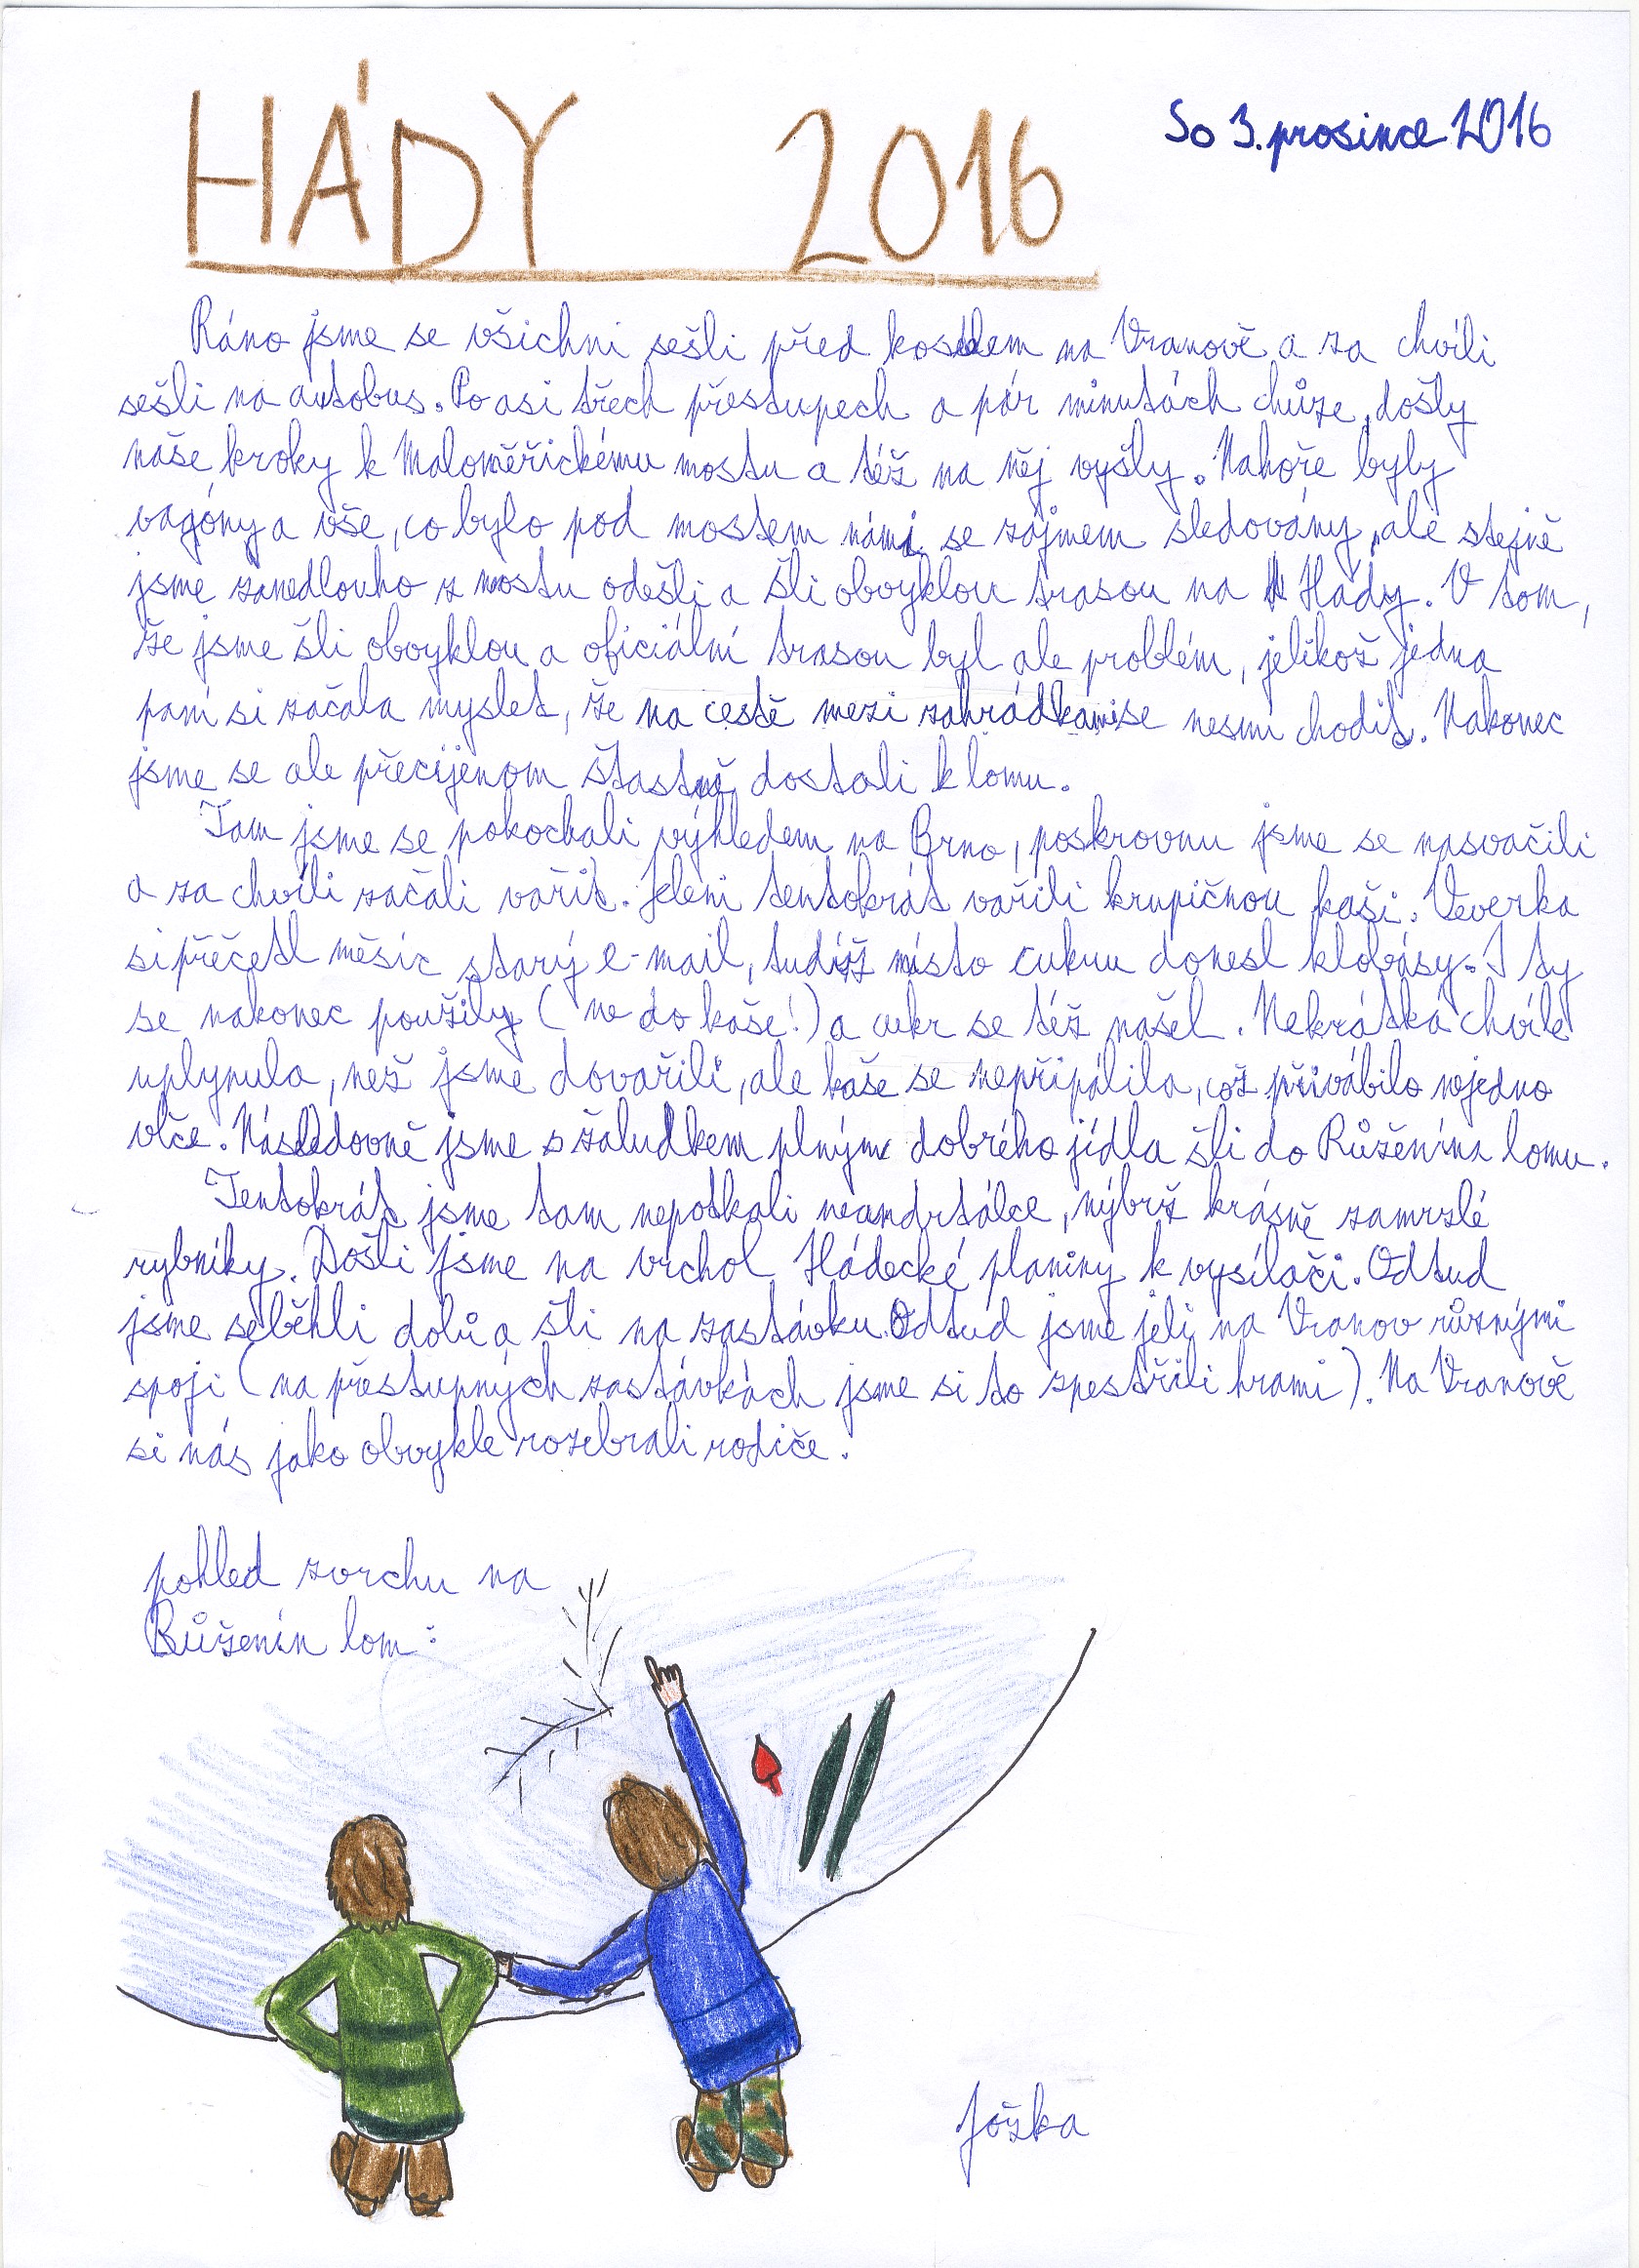 HÁDY 2016
So 3. prosince 2016
Ráno jsme se všichni sešli před kostelem na Vranově a za chvíli
sešli na autobus. Po asi třech přestupech a pár minutách chůze, došly
naše kroky k Maloměřickému mostu a též na něj vyšly. Nahoře byly
vagóny a vše, co bylo pod mostem námi se zájmem sledovány, ale stejně
jsme zanedlouho z mostu odešli a šli obvyklou trasou na Hády. V tom,
že jsme šli obvyklou a oficiální trasou byl ale problém, jelikož jedna
paní si začala myslet, že na cestě mezi zahrádkami se nesmí chodit. Nakonec
jsme se ale přecijenom šťastně dostali k lomu.
Tam jsme se pokochali výhledem na Brno, poskrovnu jsme se nasvačili
a za chvíli začali vařit. Jeleni tentokrát vařili krupičnou kaši. Veverka
si přečetl měsíc starý e-mail, tudíž místo cukru donesl klobásy. I ty
se nakonec použily (ne do kaše!) a cukr se též našel. Nekrátká chvíle
uplynula, než jsme dovařili, ale kaše se nepřipálila, což přivábilo nejedno
vlče. Následovně jsme s žaludkem plným dobrého jídla šli do Růženina lomu.
Tentokrát jsme tam nepotkali neandrtálce, nýbrž krásně zamrzlé
rybníky. Došli jsme na vrchol Hádecké planiny k vysílači. Odtud
jsme seběhli dolů a šli na zastávku. Odtud jsme jeli na Vranov různými
spoji (na přestupných zastávkách jsme si to zpestřili hrami). Na Vranově
si nás jako obvykle rozebrali rodiče.
pohled zvrchu na
Růženín lom:
Jožka